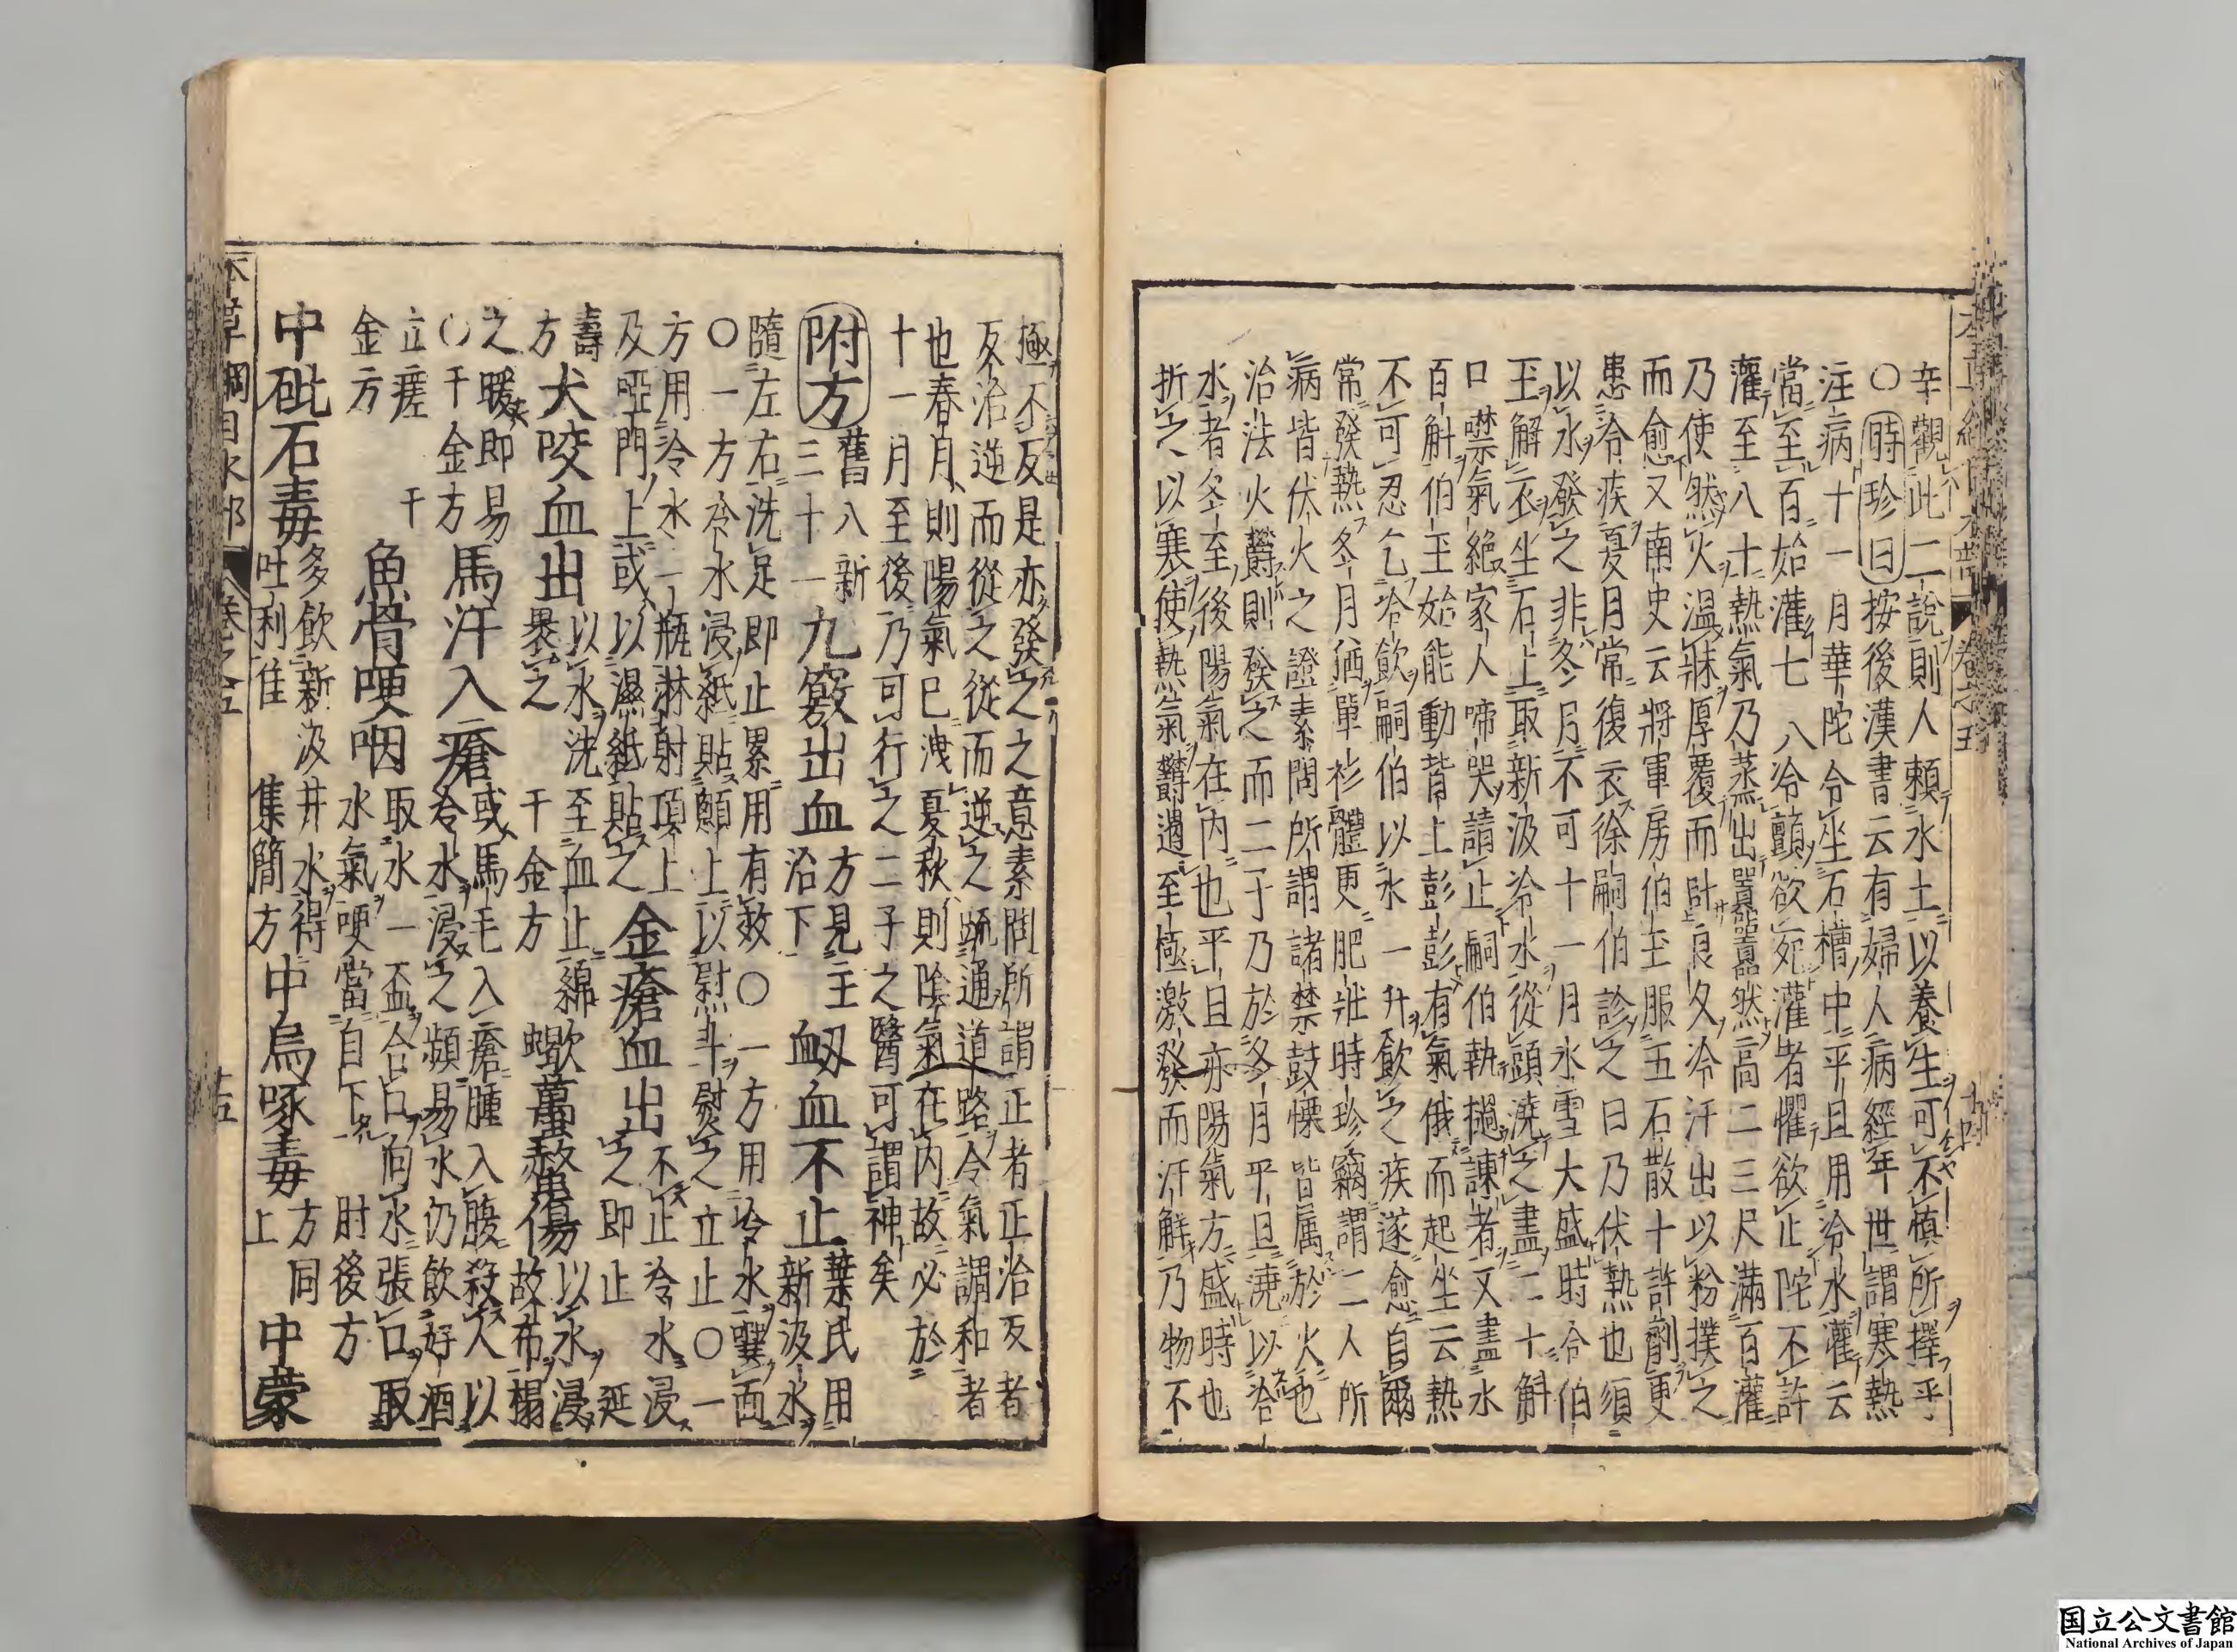 辛觀此二說則人賴水土以養生可不慎所擇乎
○時珍曰按後漢書云有婦人病經年世謂寒熱
注病十一月華陀令坐石槽中平旦用冷水灌云
當至百始灌七八冷顫欲死灌者懼欲止陀不許
灌至八十熱氣乃蒸出囂囂然高二三尺滿百灌
乃使然火溫牀厚覆而臥良久冷汗出以粉撲之
而愈又南史云將軍房伯玉服五石散十許劑更
患冷疾夏月常復衣徐嗣伯診之曰乃伏熱也須
以水發之非冬月不可十一月冰雪大盛時令伯
玉解衣坐石上取新汲冷水從頭澆之盡二十斛
口噤氣絕家人啼哭請止嗣伯執撾諫者又盡水
百斛伯玉始能動背上彭彭有氣俄而起坐云熱
不可忍乞冷飲嗣伯以水一升飲之疾遂愈自爾
常發熱冬月猶單衫體更肥壯時珍竊謂二人所
病皆伏火之證素問所謂諸禁鼓慄皆屬於火也
治法火鬱則發之而二子乃於冬月平旦澆以冷
水者冬至後陽氣在內也平旦亦陽氣方盛時也
折之以寒使熱氣鬱遏至極激發而汗解乃物不
極不反是亦發之之意素問所謂正者正治反者
反治逆而從之從而逆之疏通道路令氣調和者
也春月則陽氣已洩夏秋則陰氣在內故必於
十一月至後乃可行之二子之醫可謂神矣
附方 舊八新三十一 九竅出血 方見主治下 衂血不止 葉氏用新汲水
隨左右洗足即止累用有效○一方用冷水噀面
○一方冷水浸紙貼顖上以熨斗熨之立止○一
方用冷水一瓶淋射項上及啞門上或以濕紙貼之 金瘡血出 不止冷水浸之即止 延
壽方 犬咬血出 以水洗至血止綿裹之 千金方 蠍蠆螫傷 以水浸故布搨
之暖即易○千金方 馬汗入瘡 或馬毛入瘡腫入腹殺人以冷水浸之頻易水仍飲好酒
立瘥 千金方 魚骨哽咽 取水一盃合口向水張口取水氣哽當自下 肘後方
中砒石毒 多飲新汲井水得吐利佳 集簡方 中烏喙毒 方同上 中蒙
本草綱目水部 卷之五